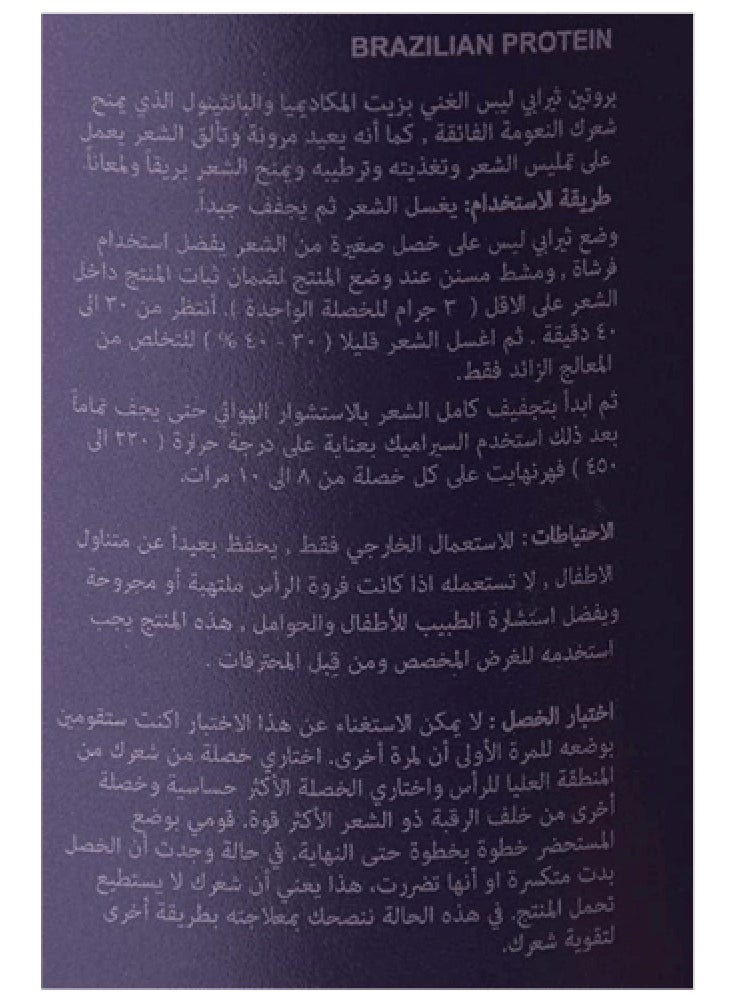 BRAZILIAN PROTEIN
بروتين ثيرابي ليس الغني بزيت المكاديميا والبانثينول الذي يمنح
شعرك النعومة الفائقة , كما أنه يعيد مرونة وتألق الشعر يعمل
على تمليس الشعر وتغذيته وترطيبه ويمنح الشعر بريقاً ولمعاناً.
طريقة للاستخدام: يغسل الشعر ثم يجفف جيداً.
وضع ثيرابي ليس على خصل صغيرة من الشعر يفضل استخدام
فرشاة , ومشط مسنن عند وضع المنتج لضمان ثبات المنتج داخل
الشعر على الاقل ( ٣ جرام للخصلة الواحدة ). أنتظر من ٣٠ الى
٤٠ دقيقة . ثم اغسل الشعر قليلا ( ٣٠ - ٤٠ % ) للتخلص من
المعالج الزائد فقط.
ثم ابدأ بتجفيف كامل الشعر بالاستشوار الهوائي حتى يجف تماماً
بعد ذلك استخدم السيراميك بعناية على درجة حرارة ( ٢٢٠ الى
٤٥٠ ) فهرنهايت على كل خصلة من ٨ الى ١٠ مرات.
الاحتياطات : للاستعمال الخارجي فقط , يحفظ بعيداً عن متناول
الاطفال , لا تستعمله اذا كانت فروة الرأس ملتهبة أو مجروحة
ويفضل استشارة الطبيب للأطفال والحوامل , هذه المنتج يجب
استخدمه للغرض المخصص ومن قِبل المحترفات .
اختبار الخصل : لا يمكن الاستغناء عن هذا الاختبار اكنت ستقومين
بوضعه للمرة الأولى أن لمرة أخرى. اختاري خصلة من شعرك من
المنطقة العليا للرأس واختاري الخصلة الأكثر حساسية وخصلة
أخرى من خلف الرقبة ذو الشعر الأكثر قوة. قومي بوضع
المستحضر خطوة بخطوة حتى النهاية. في حالة وجدت أن الخصل
بدت متكسرة او أنها تضررت، هذا يعني أن شعرك لا يستطيع
تحمل المنتج. في هذه الحالة ننصحك بمعلاجته بطريقة أخرى
لتقوية شعرك.